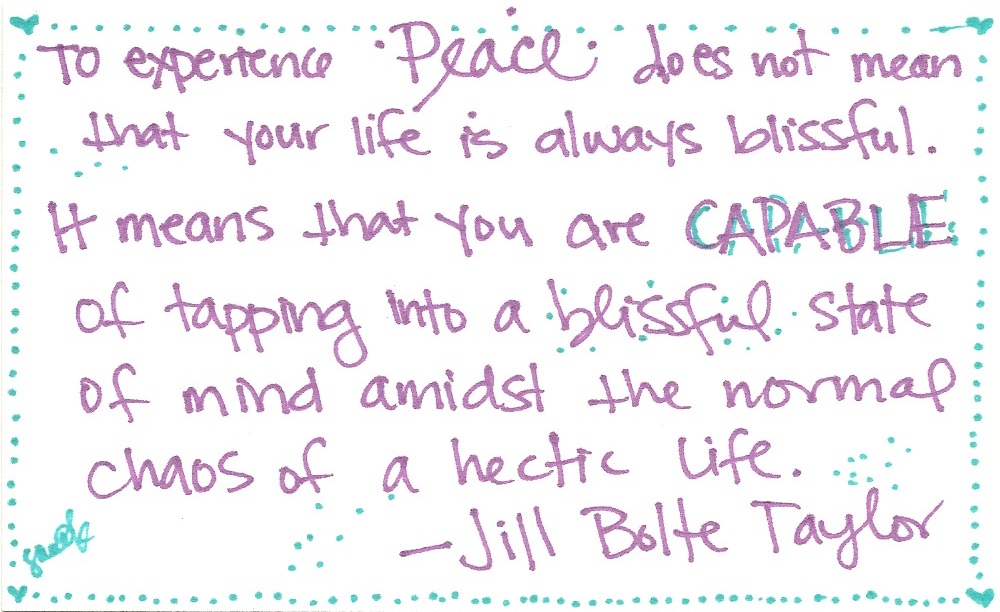 To experience Peace does not mean
that your life is always blissful.
It means that you are CAPABLE
of tapping into a blissful state
of mind amidst the normal
chaos of a hectic life.
—Jill Bolte Taylor